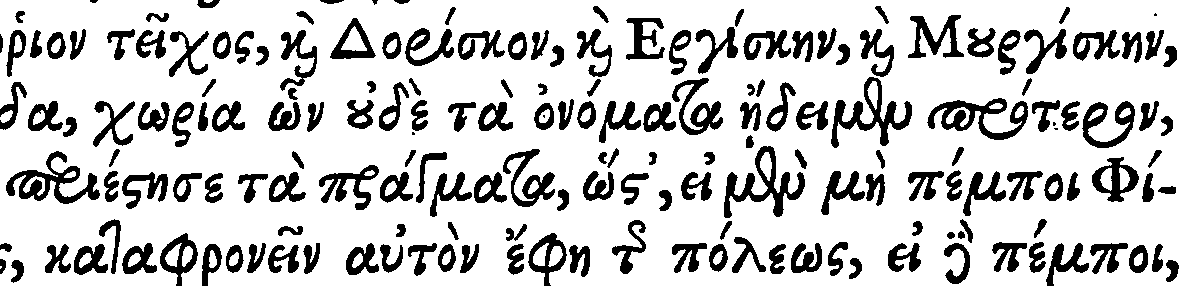 ριον τεῖχος, καὶ Δορίσκον, καὶ Εργίσκην, καὶ Μουργίσκην,
δα, χωρία ὧν οὐδὲ τὰ ὀνόματα ᾔδειμεν πρότερον,
περιέστησε τὰ πράγματα, ὥστ', εἰ μὲν μὴ πέμποι Φί-
ς, καταφρονεῖν αὐτὸν ἔφη τῆς πόλεως, εἰ δὲ πέμποι,